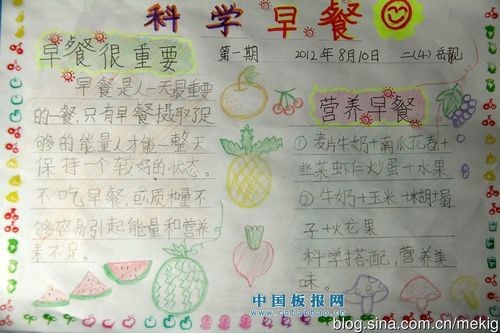 科学早餐
早餐很重要
第一期 2012年8月10日 二(4) 岳靓
早餐是人一天最重要
的一餐,只有早餐摄取足
够的能量人才能一整天
保持一个较好的状态。
不吃早餐,或质和量不
够容易引起能量和营养
素不足。
营养早餐
①麦片牛奶+南瓜花卷+
韭菜虾仁炒蛋+水果
②牛奶+玉米+糊塌
子+火龙果
科学搭配,营养美
味。
中国板报网
www.cnbanbao.com
blog.sina.com.cn/mekig